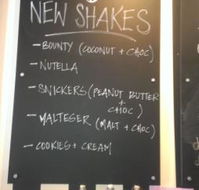 NEW SHAKES
- BOUNTY (COCONUT + CHOC)
- NUTELLA
- SNICKERS (PEANUT BUTTER
+
CHOC)
- MALTESER (MALT + CHOC)
- COOKIES + CREAM